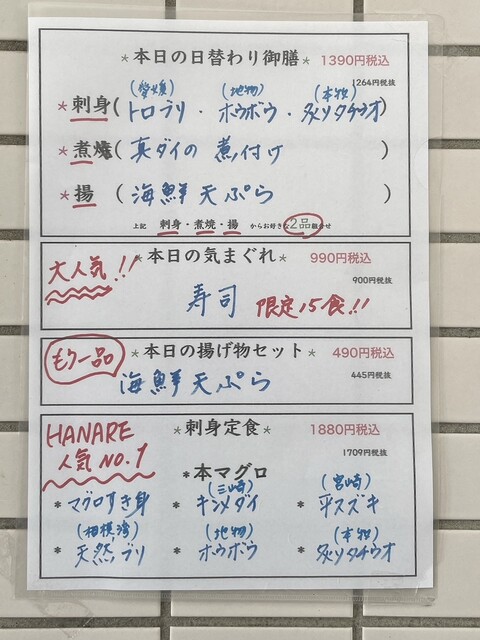 *本日の日替わり御膳* 1390円税込
1264円税抜
(愛媛) (地物) (本牧)
*刺身(トロブリ・ホウボウ・炙りタチウオ)
*煮焼(真ダイの煮付け)
*揚(海鮮天ぷら)
上記 刺身・煮焼・揚 からお好きな2品載せ
大人気!! *本日の気まぐれ* 990円税込
900円税抜
寿司 限定15食!!
もう一品 *本日の揚げ物セット* 490円税込
445円税抜
海鮮天ぷら
HANARE *刺身定食* 1880円税込
人気NO.1 1709円税抜
*本マグロ
(三崎) (宮崎)
*マグロすき身 *キンメダイ *平スズキ
(相模湾) (地物) (本牧)
*天然ブリ *ホウボウ *炙りタチウオ